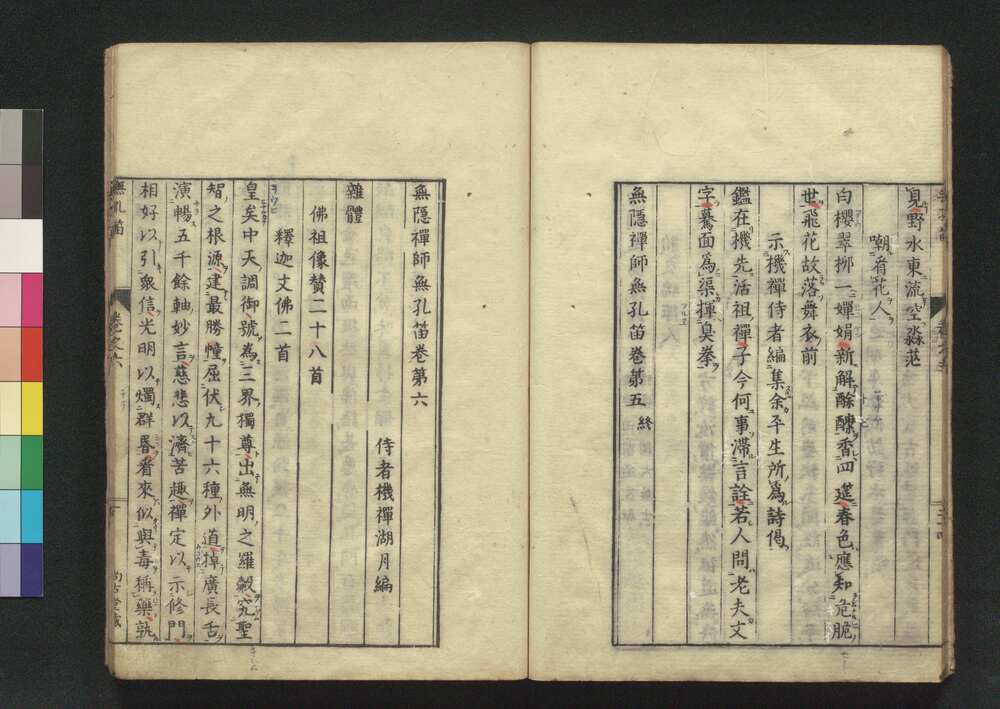 見野水東流空淼茫
嘲看花人
白櫻翠柳一嬋娟新解酴醿香四筵春色應知危脆
世飛花故落舞衣前
示機禪侍者編集余平生所爲詩偈
鑑在機先活祖禪子今何事滯言詮若人問老夫文
字驀面爲渠揮臭拳
無隱禪師無孔笛卷第五 終
無隱禪師無孔笛卷第六
侍者機禪湖月編
雜體
佛祖像贊二十八首
釋迦文佛二首
皇矣中天調御號爲三界獨尊出無明之羅縠究聖
智之根源建最勝幢屈伏九十六種外道掉廣長舌
演暢五千餘軸妙言慈悲以濟苦趣禪定以示修門
相好以引衆信光明以燭群昬看來似與毒稱藥孰
無孔笛
卷之六